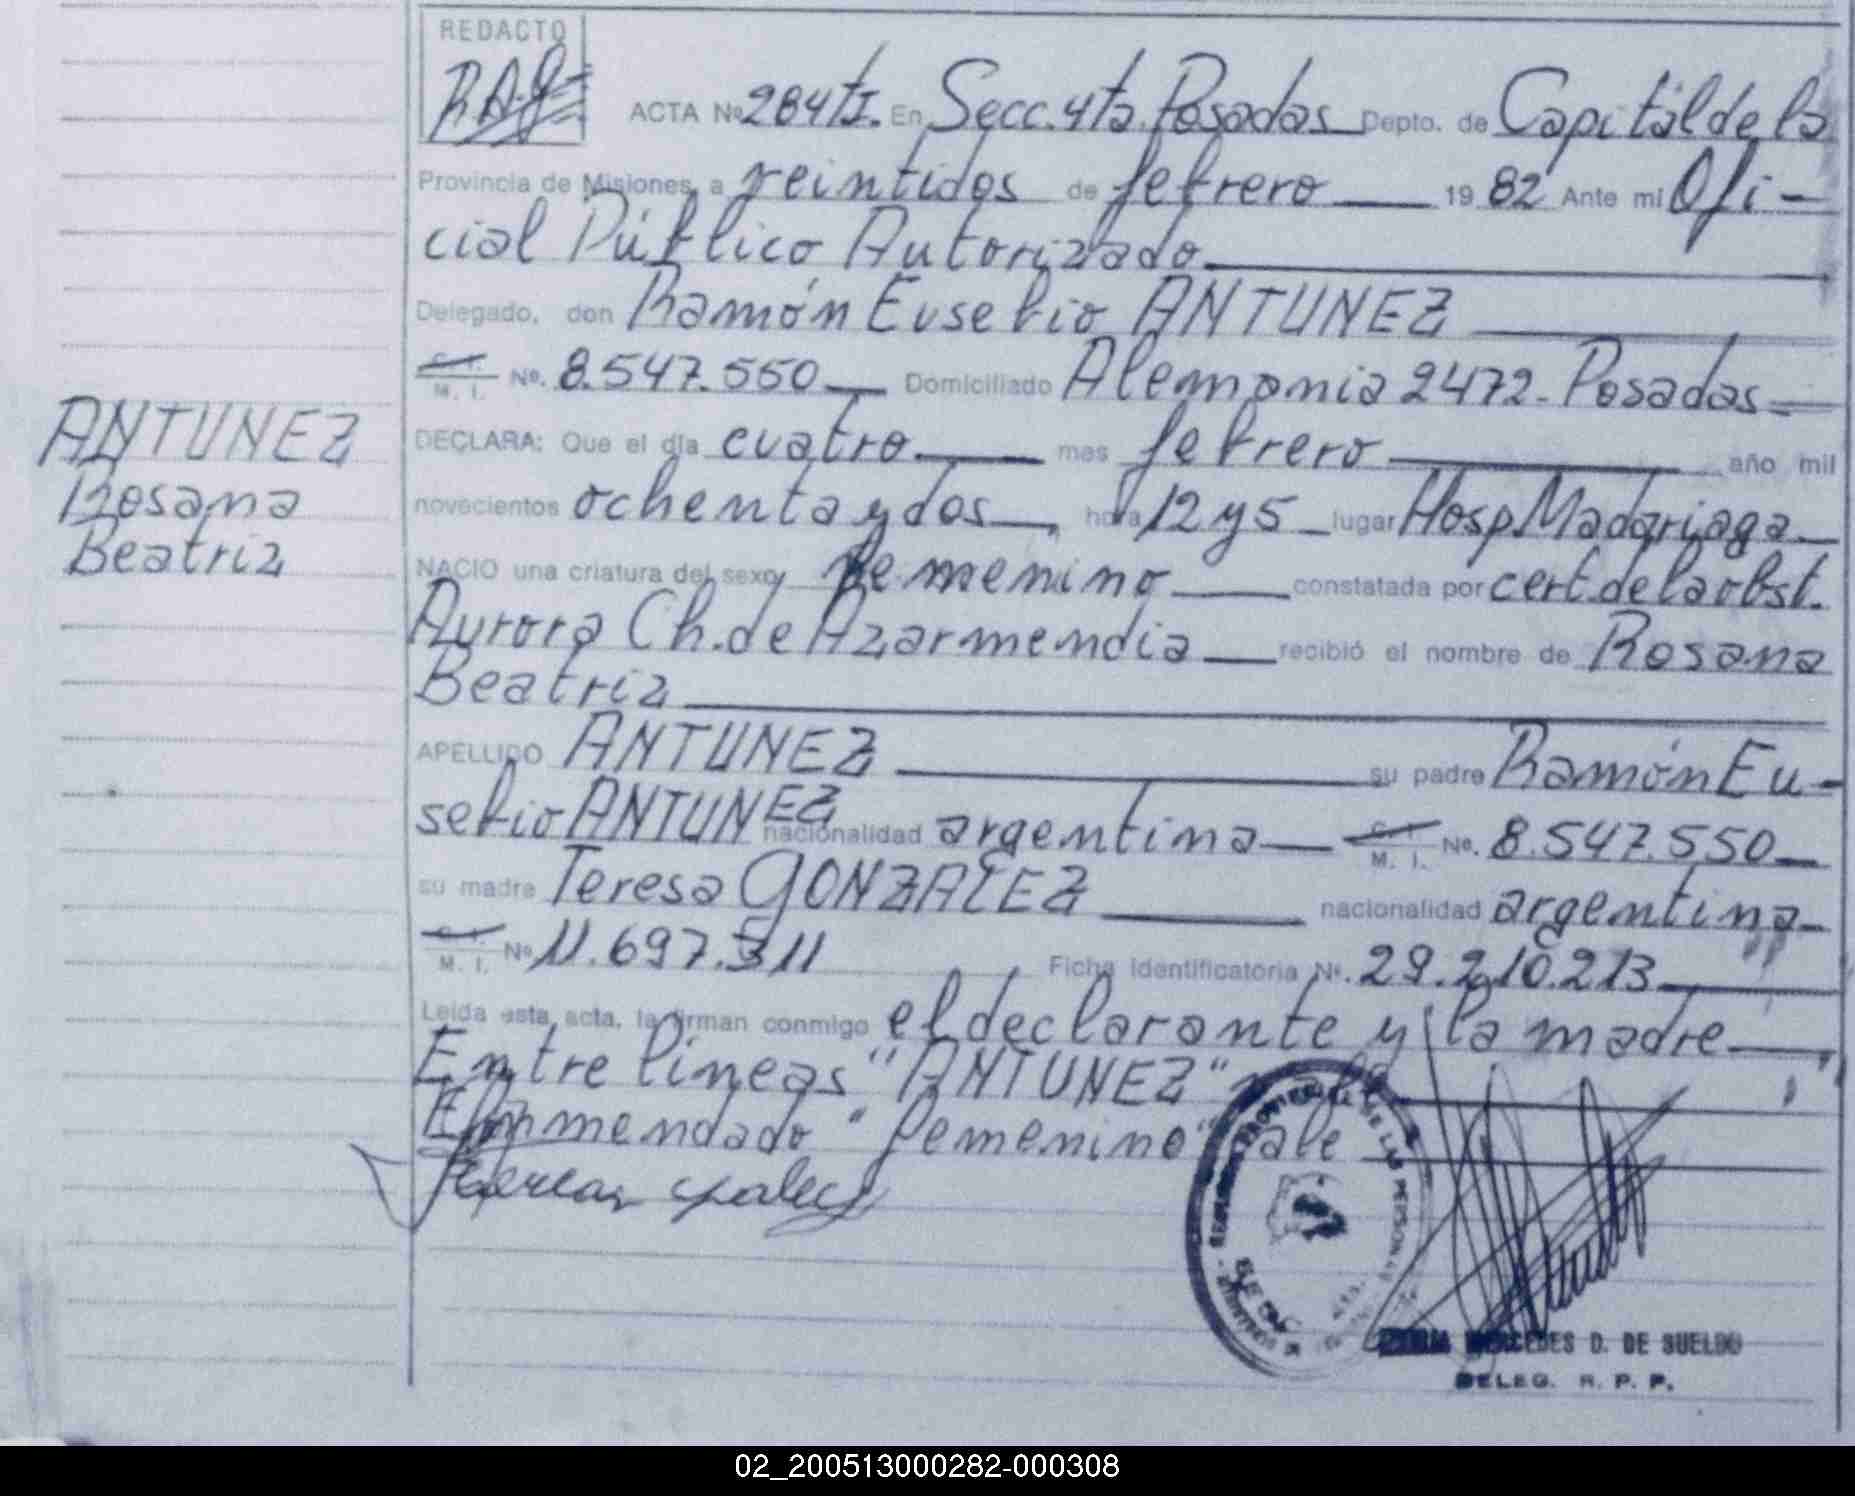 REDACTO
ACTA Nº 284 tI. En Secc. 4ta. Posadas Depto. de Capital de la
Provincia de Misiones, a veintidos de febrero 1982 Ante mi Ofi-
cial Público Autorizado
Delegado, don Ramón Eusebio ANTUNEZ
M. I. Nº. 8.547.550 Domiciliado Alemania 2472 - Posadas
DECLARA: Que el día cuatro mes febrero año mil
ANTUNEZ
novecientos ochenta y dos, hora 12 y 5 lugar Hosp. Madariaga
Rosana
NACIO una criatura del sexo femenino constatada por cert. de la obst.
Beatriz
Aurora Ch. de Azarmendia recibió el nombre de Rosana
Beatriz
APELLIDO ANTUNEZ su padre Ramón Eu-
sebio ANTUNEZ nacionalidad argentina M. I. Nº. 8.547.550
su madre Teresa GONZALEZ nacionalidad argentina
M. I. Nº 11.697.311 Ficha Identificatoria Nº. 29.210.213
Leída esta acta, la firman conmigo el declarante y la madre
Entre líneas "ANTUNEZ" vale
Enmendado "femenino" vale
MERCEDES D. DE SUELDO
DELEG. R. P. P.
02_200513000282-000308